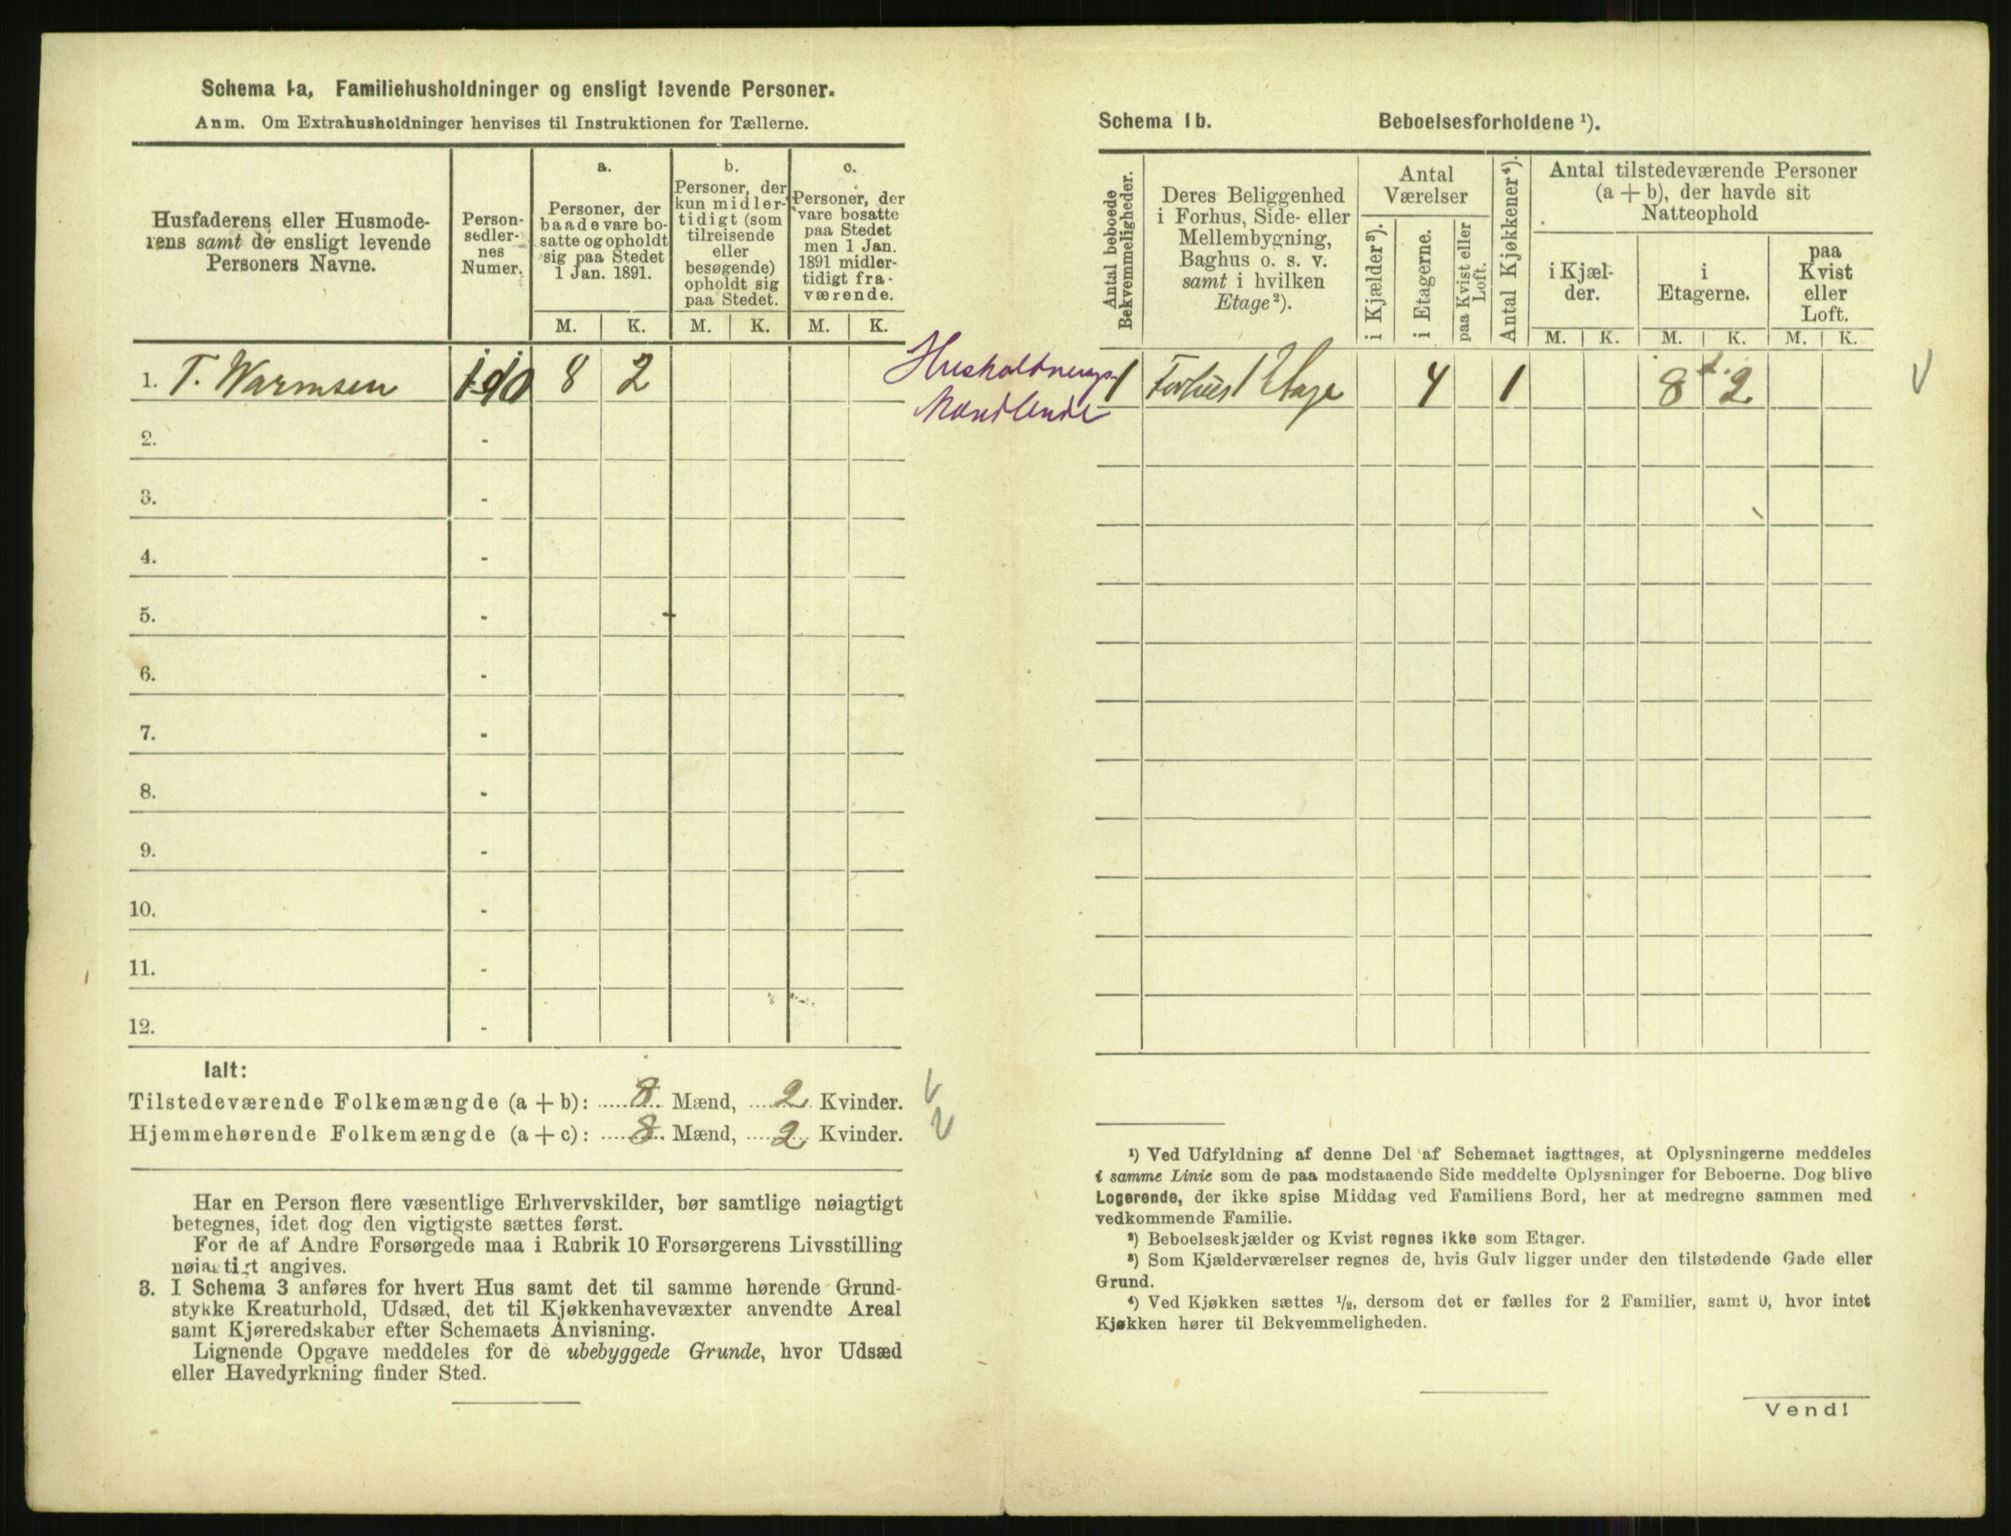 Schema 1a, Familiehusholdninger og ensligt levende Personer.
Anm. Om Extrahusholdninger henvises til Instruktionen for Tællerne.
Husfaderens eller Husmode-
rens samt de ensligt levende
Personers Navne.
Person-
sedler-
nes
Numer.
a.
Personer, der
baade vare bo-
satte og opholdt
sig paa Stedet
1 Jan. 1891.
b.
Personer, der
kun midler-
tidigt (som
tilreisende
eller
besøgende)
opholdt sig
paa Stedet.
c.
Personer, der
vare bosatte
paa Stedet
men 1 Jan.
1891 midler-
tidigt fra-
værende.
M. K. M. K. M. K.
1. T. Warmsen 1-10 8 2
2. -
3. -
4. -
5. -
6. -
7. -
8. -
9. -
10. -
11. -
12. -
Ialt:
Tilstedeværende Folkemængde (a + b): 8 Mænd, 2 Kvinder.
Hjemmehørende Folkemængde (a + c): 8 Mænd, 2 Kvinder.
Har en Person flere væsentlige Erhvervskilder, bør samtlige nøiagtigt
betegnes, idet dog den vigtigste sættes først.
For de af Andre Forsørgede maa i Rubrik 10 Forsørgerens Livsstilling
nøiagtigt angives.
3. I Schema 3 anføres for hvert Hus samt det til samme hørende Grund-
stykke Kreaturhold, Udsæd, det til Kjøkkenhavevæxter anvendte Areal
samt Kjøreredskaber efter Schemaets Anvisning.
Lignende Opgave meddeles for de ubebyggede Grunde, hvor Udsæd
eller Havedyrkning finder Sted.
Schema 1b. Beboelsesforholdene ¹).
Antal beboede
Bekvemmeligheder.
Deres Beliggenhed
i Forhus, Side- eller
Mellembygning,
Baghus o. s. v.
samt i hvilken
Etage²).
Antal
Værelser
i Kjælder³).
i Etagerne.
paa Kvist eller
Loft.
Antal Kjøkkener⁴).
Antal tilstedeværende Personer
(a + b), der havde sit
Natteophold
i Kjæl-
der.
i
Etagerne.
paa
Kvist
eller
Loft.
M. K. M. K. M. K.
Husholdnings
Mandlende
1 Forhus 1 Etage 4 1 8 2
¹) Ved Udfyldning af denne Del af Schemaet iagttages, at Oplysningerne meddeles
i samme Linie som de paa modstaaende Side meddelte Oplysninger for Beboerne. Dog blive
Logerende, der ikke spise Middag ved Familiens Bord, her at medregne sammen med
vedkommende Familie.
²) Beboelseskjælder og Kvist regnes ikke som Etager.
³) Som Kjælderværelser regnes de, hvis Gulv ligger under den tilstødende Gade eller
Grund.
⁴) Ved Kjøkken sættes ½, dersom det er fælles for 2 Familier, samt 0, hvor intet
Kjøkken hører til Bekvemmeligheden.
Vend!